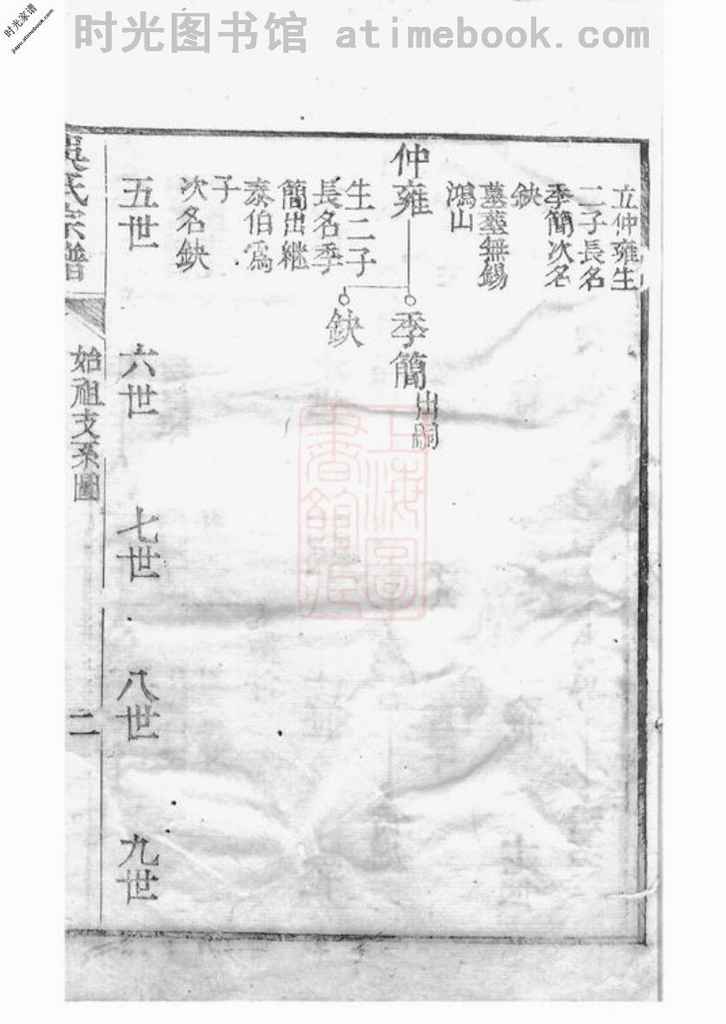 时光图书馆 atimebook.com
时光家谱
立仲雍生
二子長名
季簡次名
鈌
墓塟無錫
鴻山
仲雍
季簡出嗣
鈌
生二子
長名季
簡出継
泰伯爲
子
次名鈌
五世
六世
七世
八世
九世
吳氏宗譜
始祖支系圖
二
上海圖書館藏